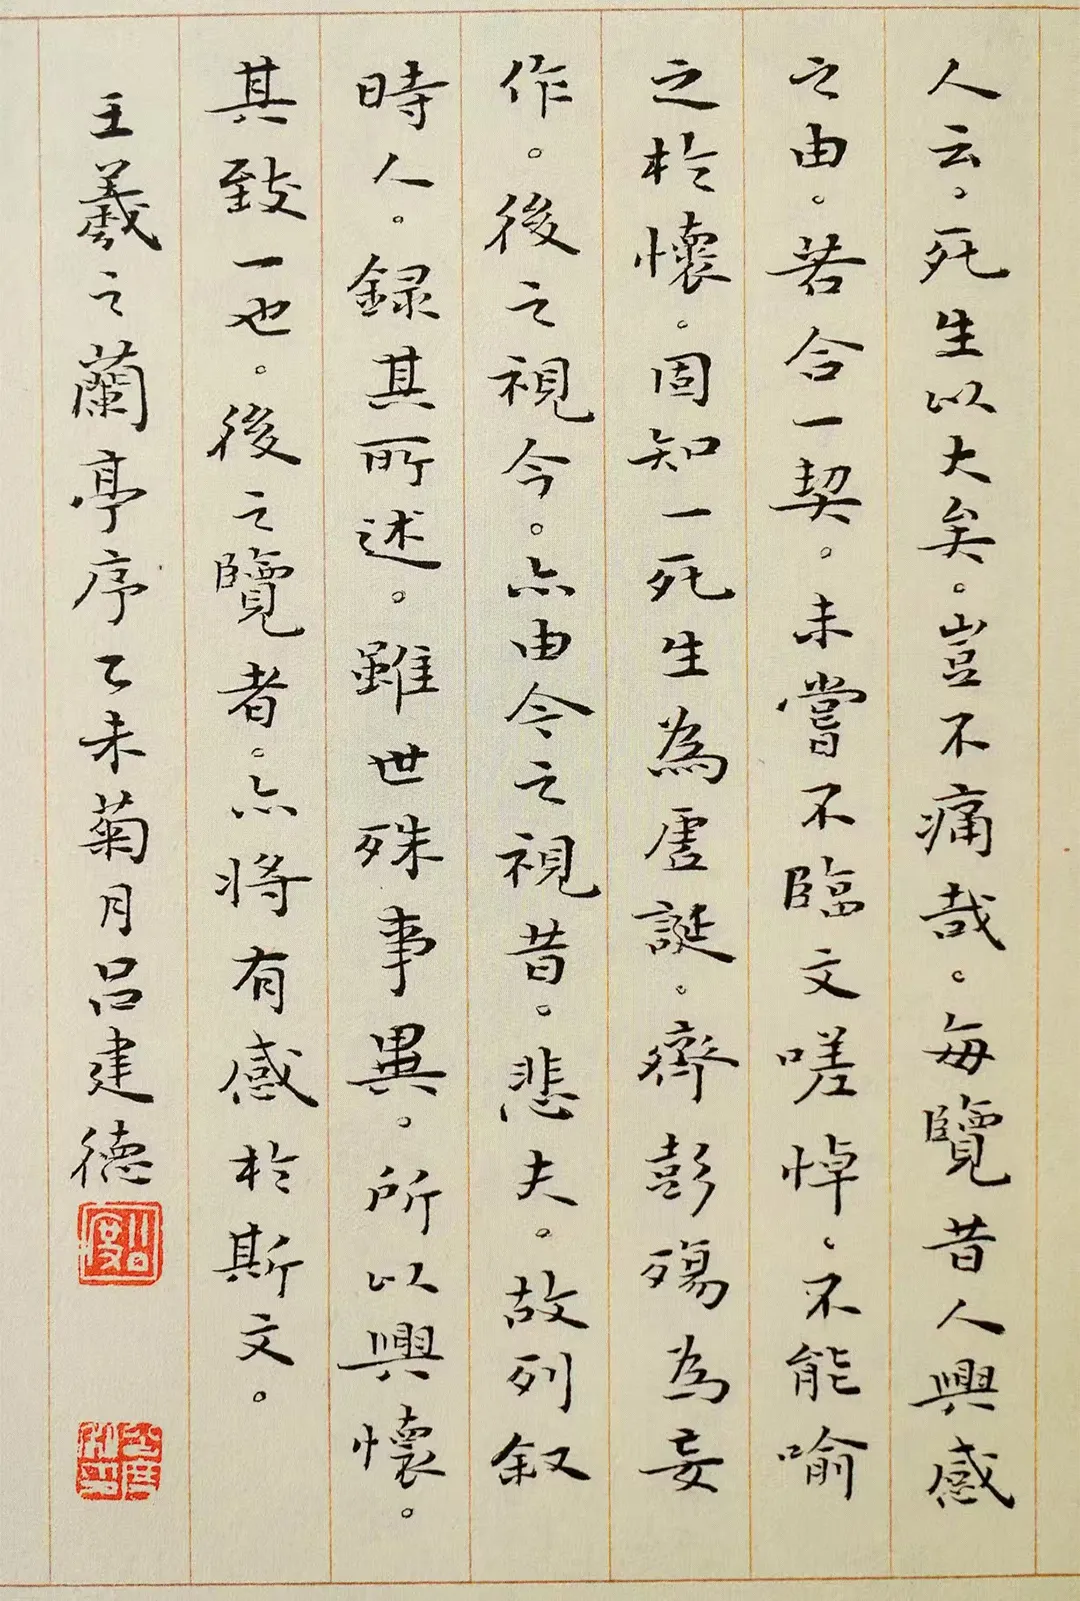 人云。死生以大矣。豈不痛哉。每覽昔人興感
之由。若合一契。未嘗不臨文嗟悼。不能喻
之於懷。固知一死生為虛誕。齊彭殤為妄
作。後之視今。亦由今之視昔。悲夫。故列叙
時人。録其所述。雖世殊事異。所以興懷。
其致一也。後之覽者。亦将有感於斯文。
王羲之蘭亭序乙未菊月吕建德